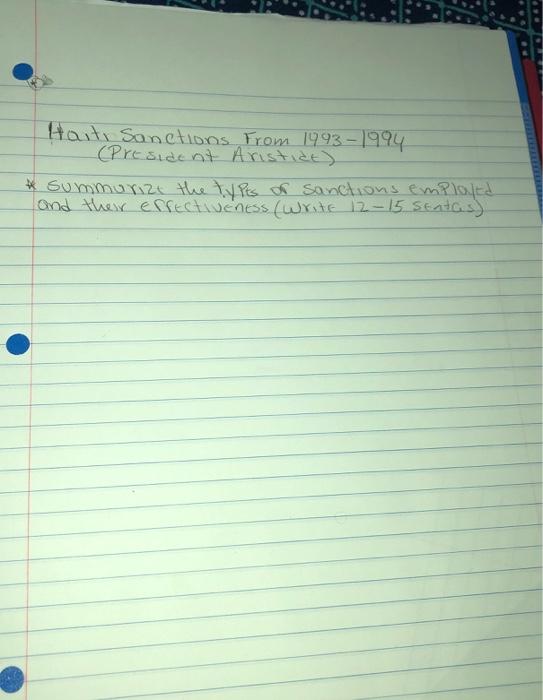 Haiti Sanctions From 1993-1994
(President Aristide)
* Summurize the types of sanctions employed
and their effectiveness (write 12-15 sentces)